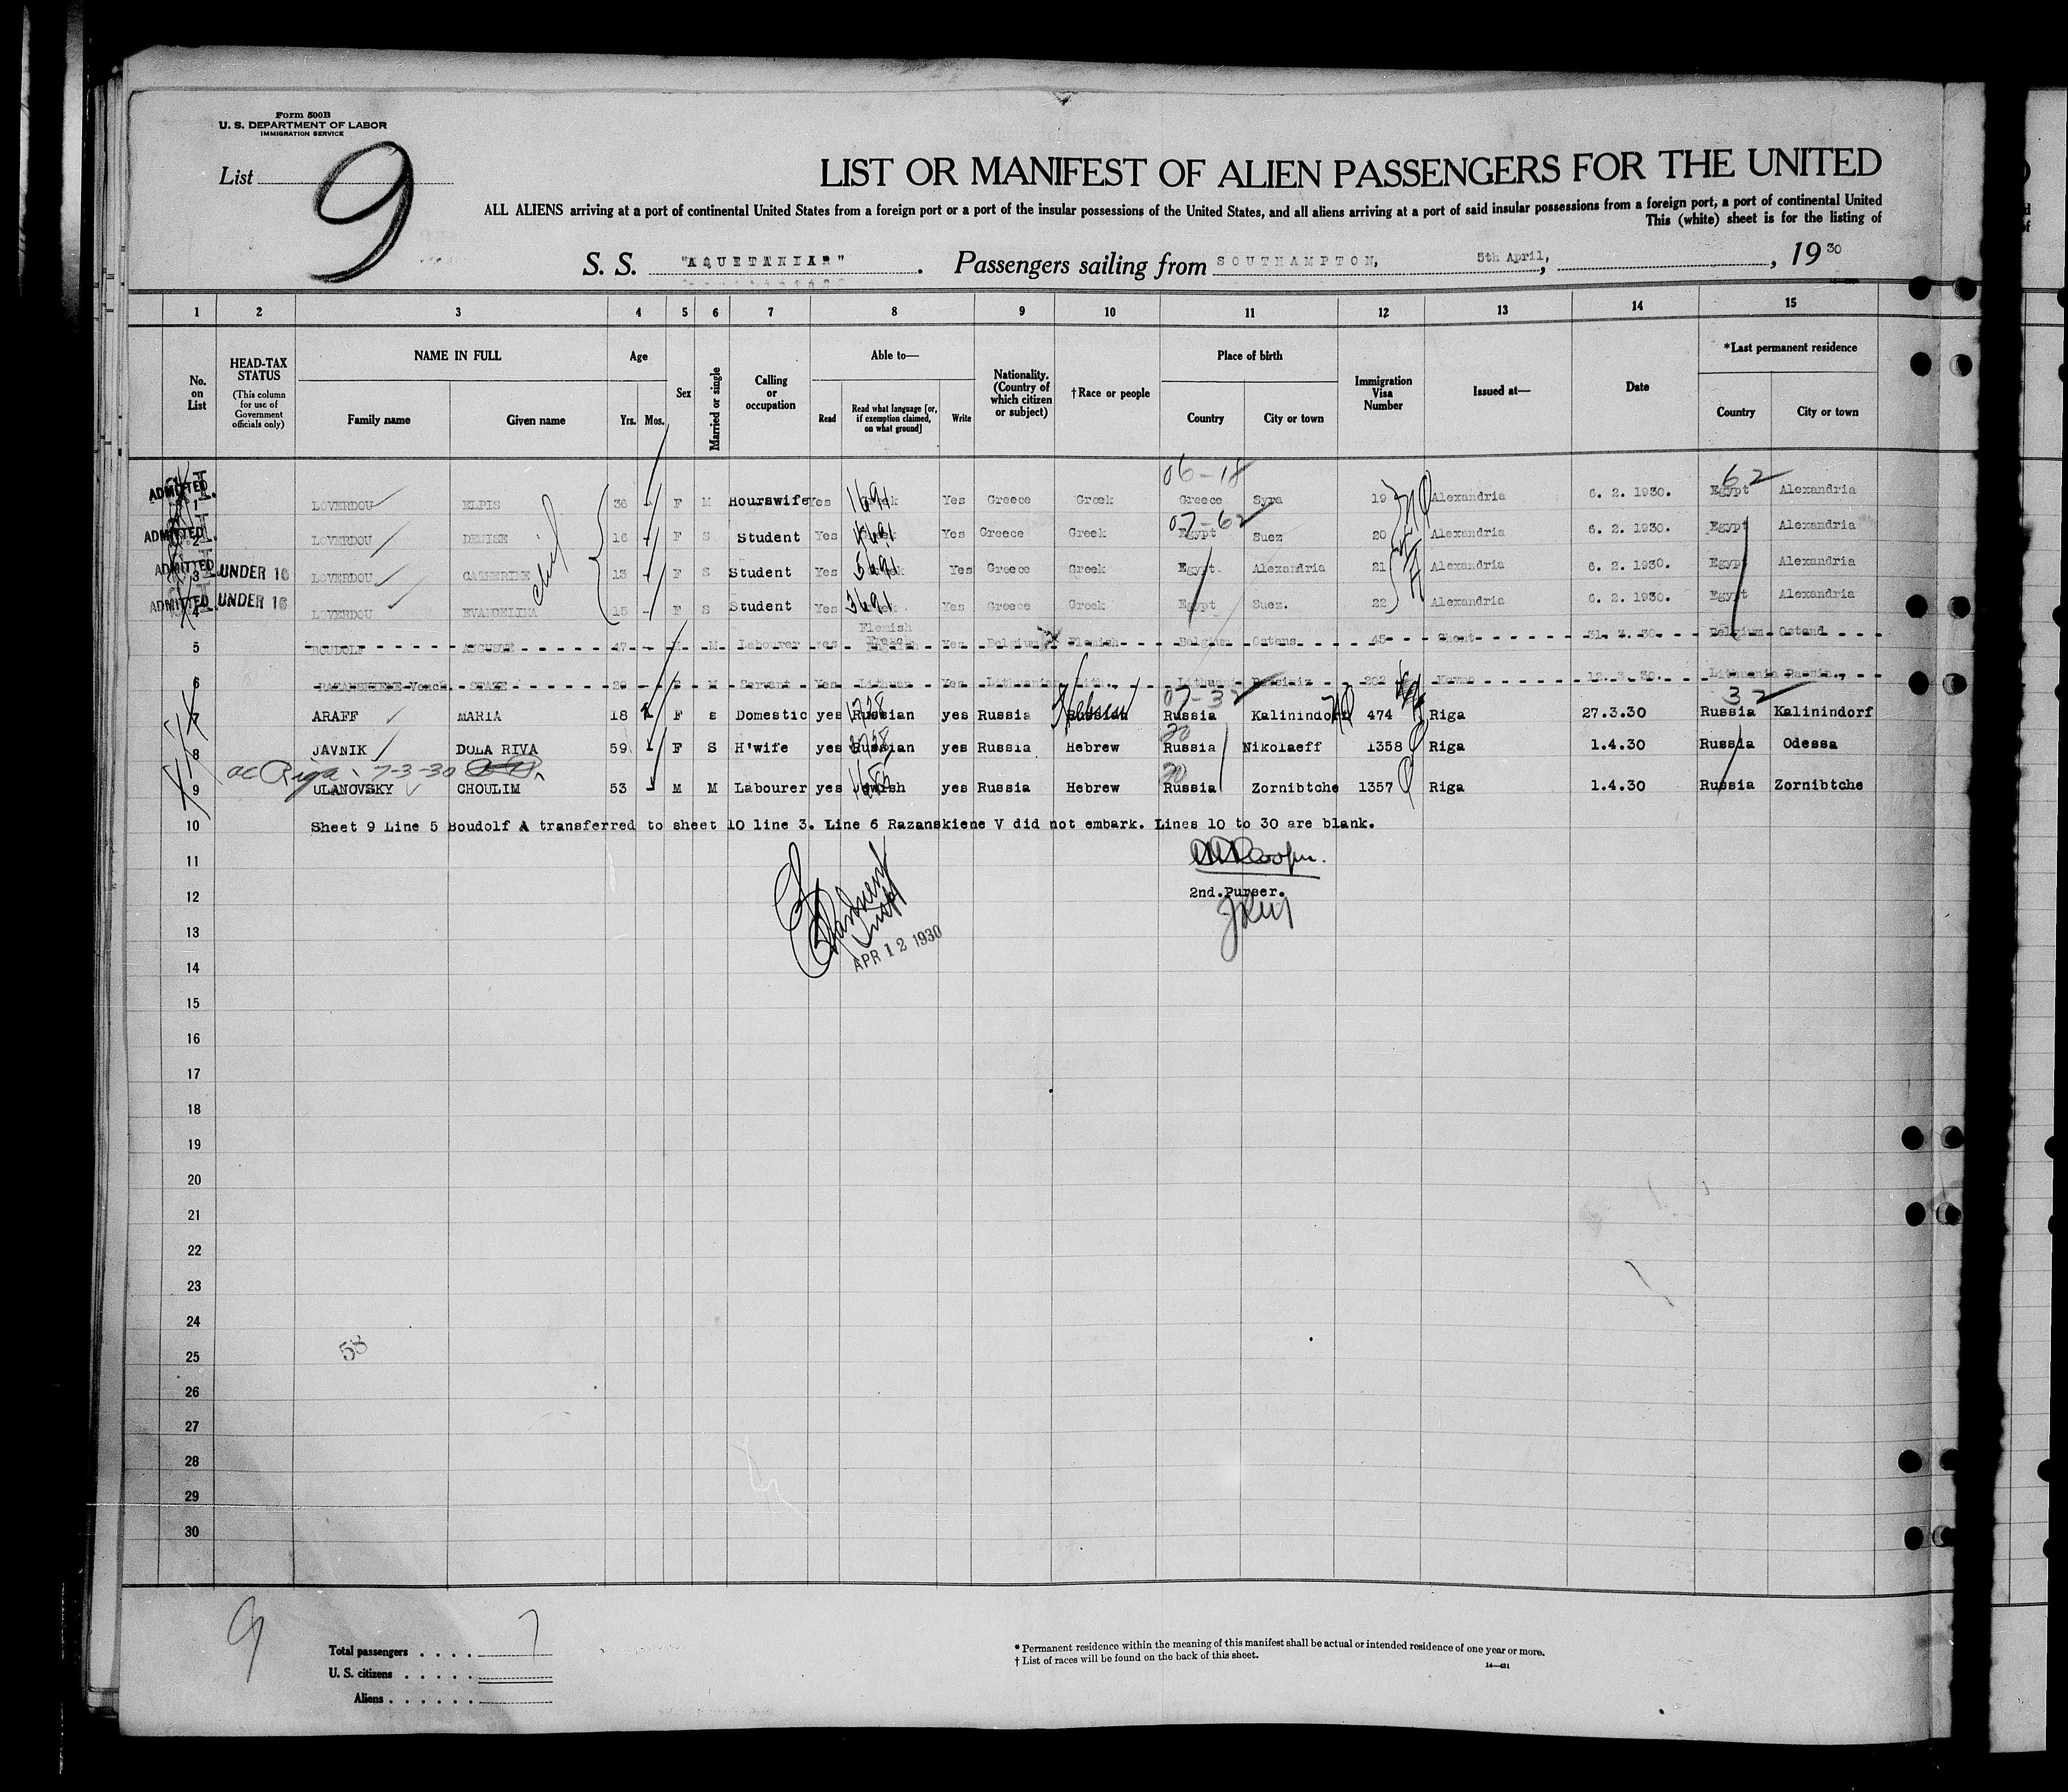 Form 500B
U. S. DEPARTMENT OF LABOR
IMMIGRATION SERVICE
List 9
LIST OR MANIFEST OF ALIEN PASSENGERS FOR THE UNITED
ALL ALIENS arriving at a port of continental United States from a foreign port or a port of the insular possessions of the United States, and all aliens arriving at a port of said insular possessions from a foreign port, a port of continental United
This (white) sheet is for the listing of
S. S. "AQUETANIA" . Passengers sailing from SOUTHAMPTON, 5th April, , 19 30
1 2 3 4 5 6 7 8 9 10 11 12 13 14 15
No. on List
HEAD-TAX STATUS
(This column for use of Government officials only)
NAME IN FULL
Family name Given name
Age
Yrs. Mos.
Sex
Married or single
Calling or occupation
Able to—
Read
Read what language [or, if exemption claimed, on what ground]
Write
Nationality. (Country of which citizen or subject)
†Race or people
Place of birth
Country City or town
Immigration Visa Number
Issued at—
Date
*Last permanent residence
Country City or town
06-18 62
ADMITTED 1 LOVERDOU ELPIS 36 F M Hourswife Yes Yes Greece Greek Greece Syra 19 Alexandria 6. 2. 1930. Egypt Alexandria
07-62
ADMITTED 2 LOVERDOU DENISE 16 F S Student Yes Yes Greece Greek Egypt Suez 20 Alexandria 6. 2. 1930. Egypt Alexandria
ADMITTED 3 UNDER 16 LOVERDOU CATHERINE 13 F S Student Yes Yes Greece Greek Egypt. Alexandria 21 Alexandria 6. 2. 1930. Egypt Alexandria
ADMITTED 4 UNDER 16 LOVERDOU EVANDELIMA 15 F S Student Yes Yes Greece Greek Egypt Suez. 22 Alexandria 6. 2. 1930. Egypt Alexandria
Flemish
5 BOUDOLF AUGUSTE 47 M Labourer yes Yes Belgium Flemish Belgium Ostens 45 Ghent 31. 3. 30. Belgium Ostend
6 Servant Yes Lithuan Yes Lithuanian Lith. 202 Kovno 12. 3. 30. Lithuania
07-32 32
7 ARAFF MARIA 18 F s Domestic yes Russian yes Russia Russian Hebrew Russia Kalinindorf 474 Riga 27.3.30 Russia Kalinindorf
20
8 JAVNIK DOLA RIVA 59 F S H'wife yes Russian yes Russia Hebrew Russia Nikolaeff 1358 Riga 1.4.30 Russia Odessa
Riga 7-3-30 20
9 ULANOVSKY CHOULIM 53 M M Labourer yes Jewish yes Russia Hebrew Russia Zornibtche 1357 Riga 1.4.30 Russia Zornibtche
10 Sheet 9 Line 5 Boudolf A transferred to sheet 10 line 3. Line 6 Razanskiene V did not embark. Lines 10 to 30 are blank.
11
12 2nd.Purser.
13
APR 12 1930
14
15
16
17
18
19
20
21
22
23
24
25 58
26
27
28
29
30
9
Total passengers . . . . 7
U. S. citizens . . . . .
Aliens . . . . . .
* Permanent residence within the meaning of this manifest shall be actual or intended residence of one year or more.
† List of races will be found on the back of this sheet.
14—431